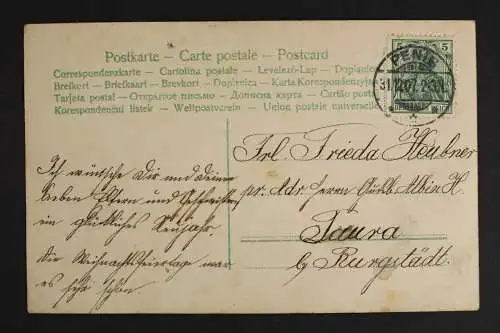 Postkarte – Carte postale – Postcard
Correspondenzkarte – Cartolina postale – Levelező-Lap – Dopisnice
Brefkort – Briefkaart – Brevkort – Dopisnica – Karta Korespondencyjna
Tarjeta postal – Открытое письмо – Дописна карта – Cartão postal
Korespondenční lístek – Weltpostverein – Union postale universelle
PENIG
31.12.07. 2-3N
5 5
Frl. Frieda Heubner
pr. Adr. Herrn Albin H.
Taura
b/ Burgstädt.
Ich wünsche Dir und Deinen
lieben Eltern und Geschwister
ein glückliches Neujahr.
Die Weihnachtsfeiertage war
es sehr schön